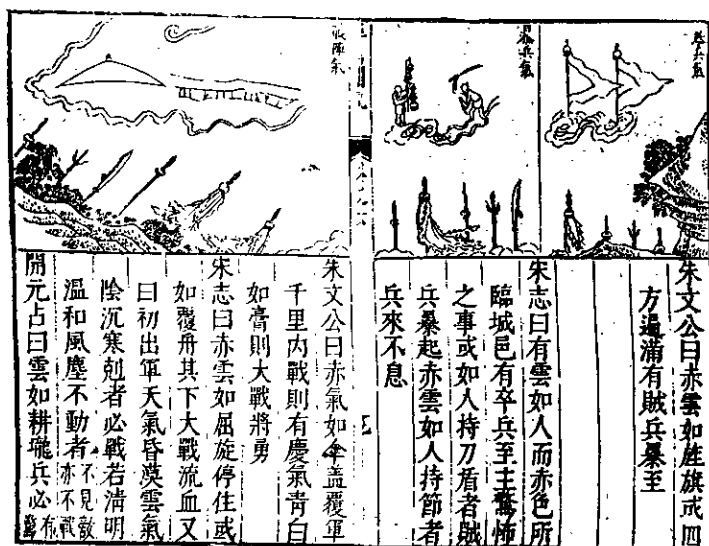 暴兵氣
朱文公曰赤雲如旌旗或四
方遍滿有賊兵暴至
暴兵氣
宋志曰有雲如人而赤色所
臨城邑有卒兵至主驚怖
之事或如人持刀盾者賊
兵暴起赤雲如人持節者
兵來不息
戰陣氣
朱文公曰赤氣如傘蓋覆軍
千里內戰則有慶氣青白
如膏則大戰將勇
宋志曰赤雲如屈旋停住或
如覆舟其下大戰流血又
曰初出軍天氣昏漠雲氣
陰沉寒剋者必戰若清明
溫和風塵不動者不見敵亦不戰
開元占曰雲如耕壠兵必有